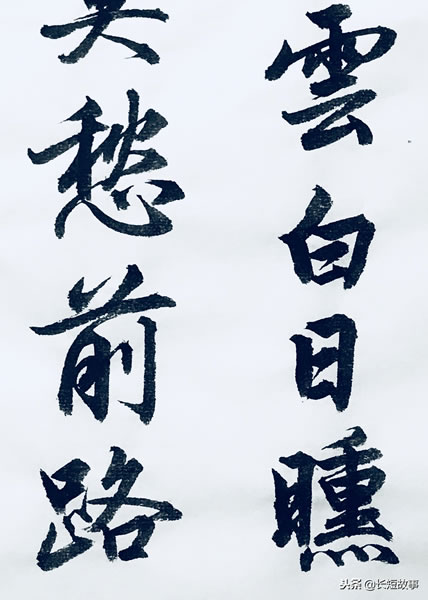 雲白日曛
莫愁前路
头条 @长短故事